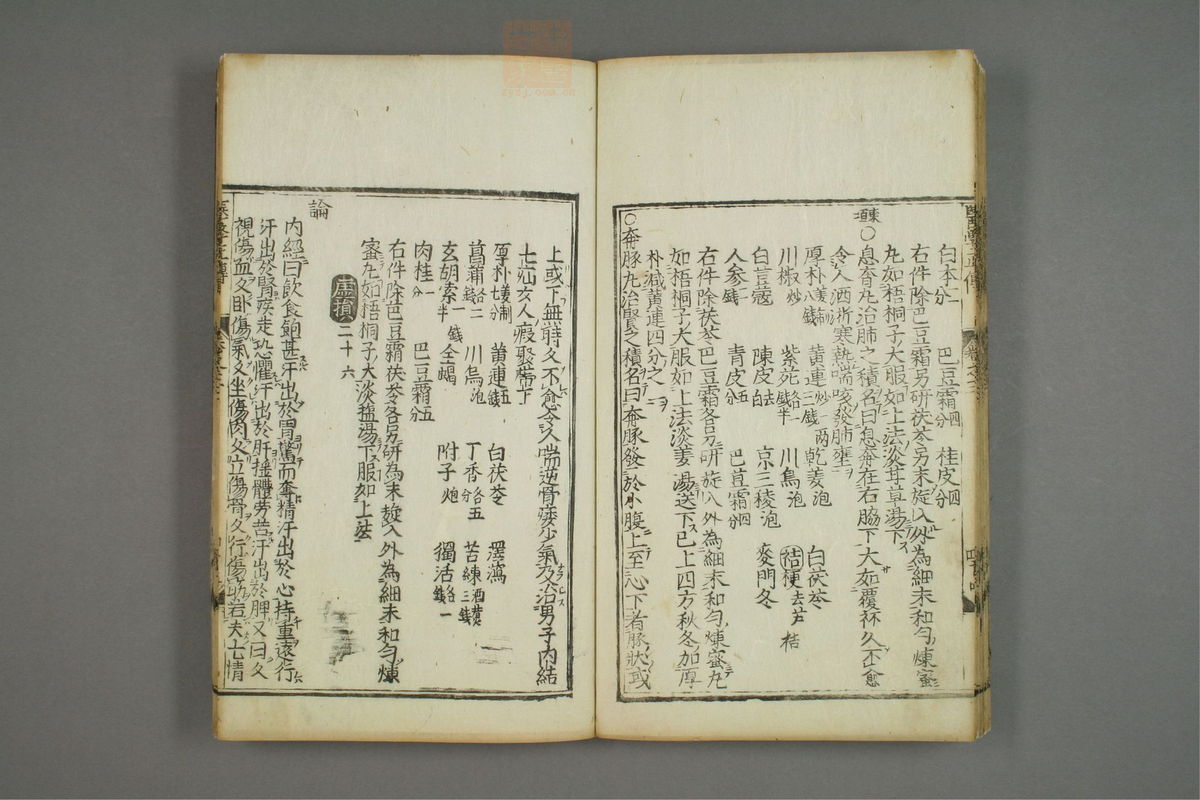 白朮二分 巴豆霜四分 桂皮四分
右件除巴豆霜另研茯苓另末旋入外為細末和勻煉蜜
丸如梧桐子大服如上法淡甘草湯下
東垣○息賁丸治肺之積名曰息賁在右脇下大如覆杯久不愈
令人洒淅寒熱喘咳發肺壅
厚朴姜制八錢 黃連炒三錢兩 乾姜炮 白茯苓
川椒炒 紫苑各一錢半 川烏炮 桔梗去芦
白荳蔻 陳皮去白 京三稜炮 麥門冬
人參一錢 青皮五分 巴荳霜四分
右件除茯苓巴豆霜各另研旋入外為細末和勻煉蜜丸
如梧桐子大服如上法淡姜湯送下已上四方秋冬加厚
朴減黃連四分之一
○奔豚丸治腎之積名曰奔豚發於小腹上至心下若豚狀或
上或下無時久不愈令人喘逆骨痿少氣及治男子內結
七疝女人瘕聚帶下
厚朴姜制七分 黃連五錢 白茯苓 澤瀉
菖蒲各二錢 川烏炮 丁香各五分 苦練酒煑三錢
玄胡索一錢半 全蝎 附子炮 獨活各一錢
肉桂一分 巴豆霜五分
右件除巴豆霜茯苓各另研為末旋入外為細末和勻煉
蜜丸如梧桐子大淡鹽湯下服如上法
虛損 二十六
論
內經曰飲食飽甚汗出於胃驚而奪精汗出於心持重遠行
汗出於腎疾走恐懼汗出於肝搖體勞苦汗出於脾又曰久
視傷血久臥傷氣久坐傷肉久立傷骨久行傷筋若夫七情